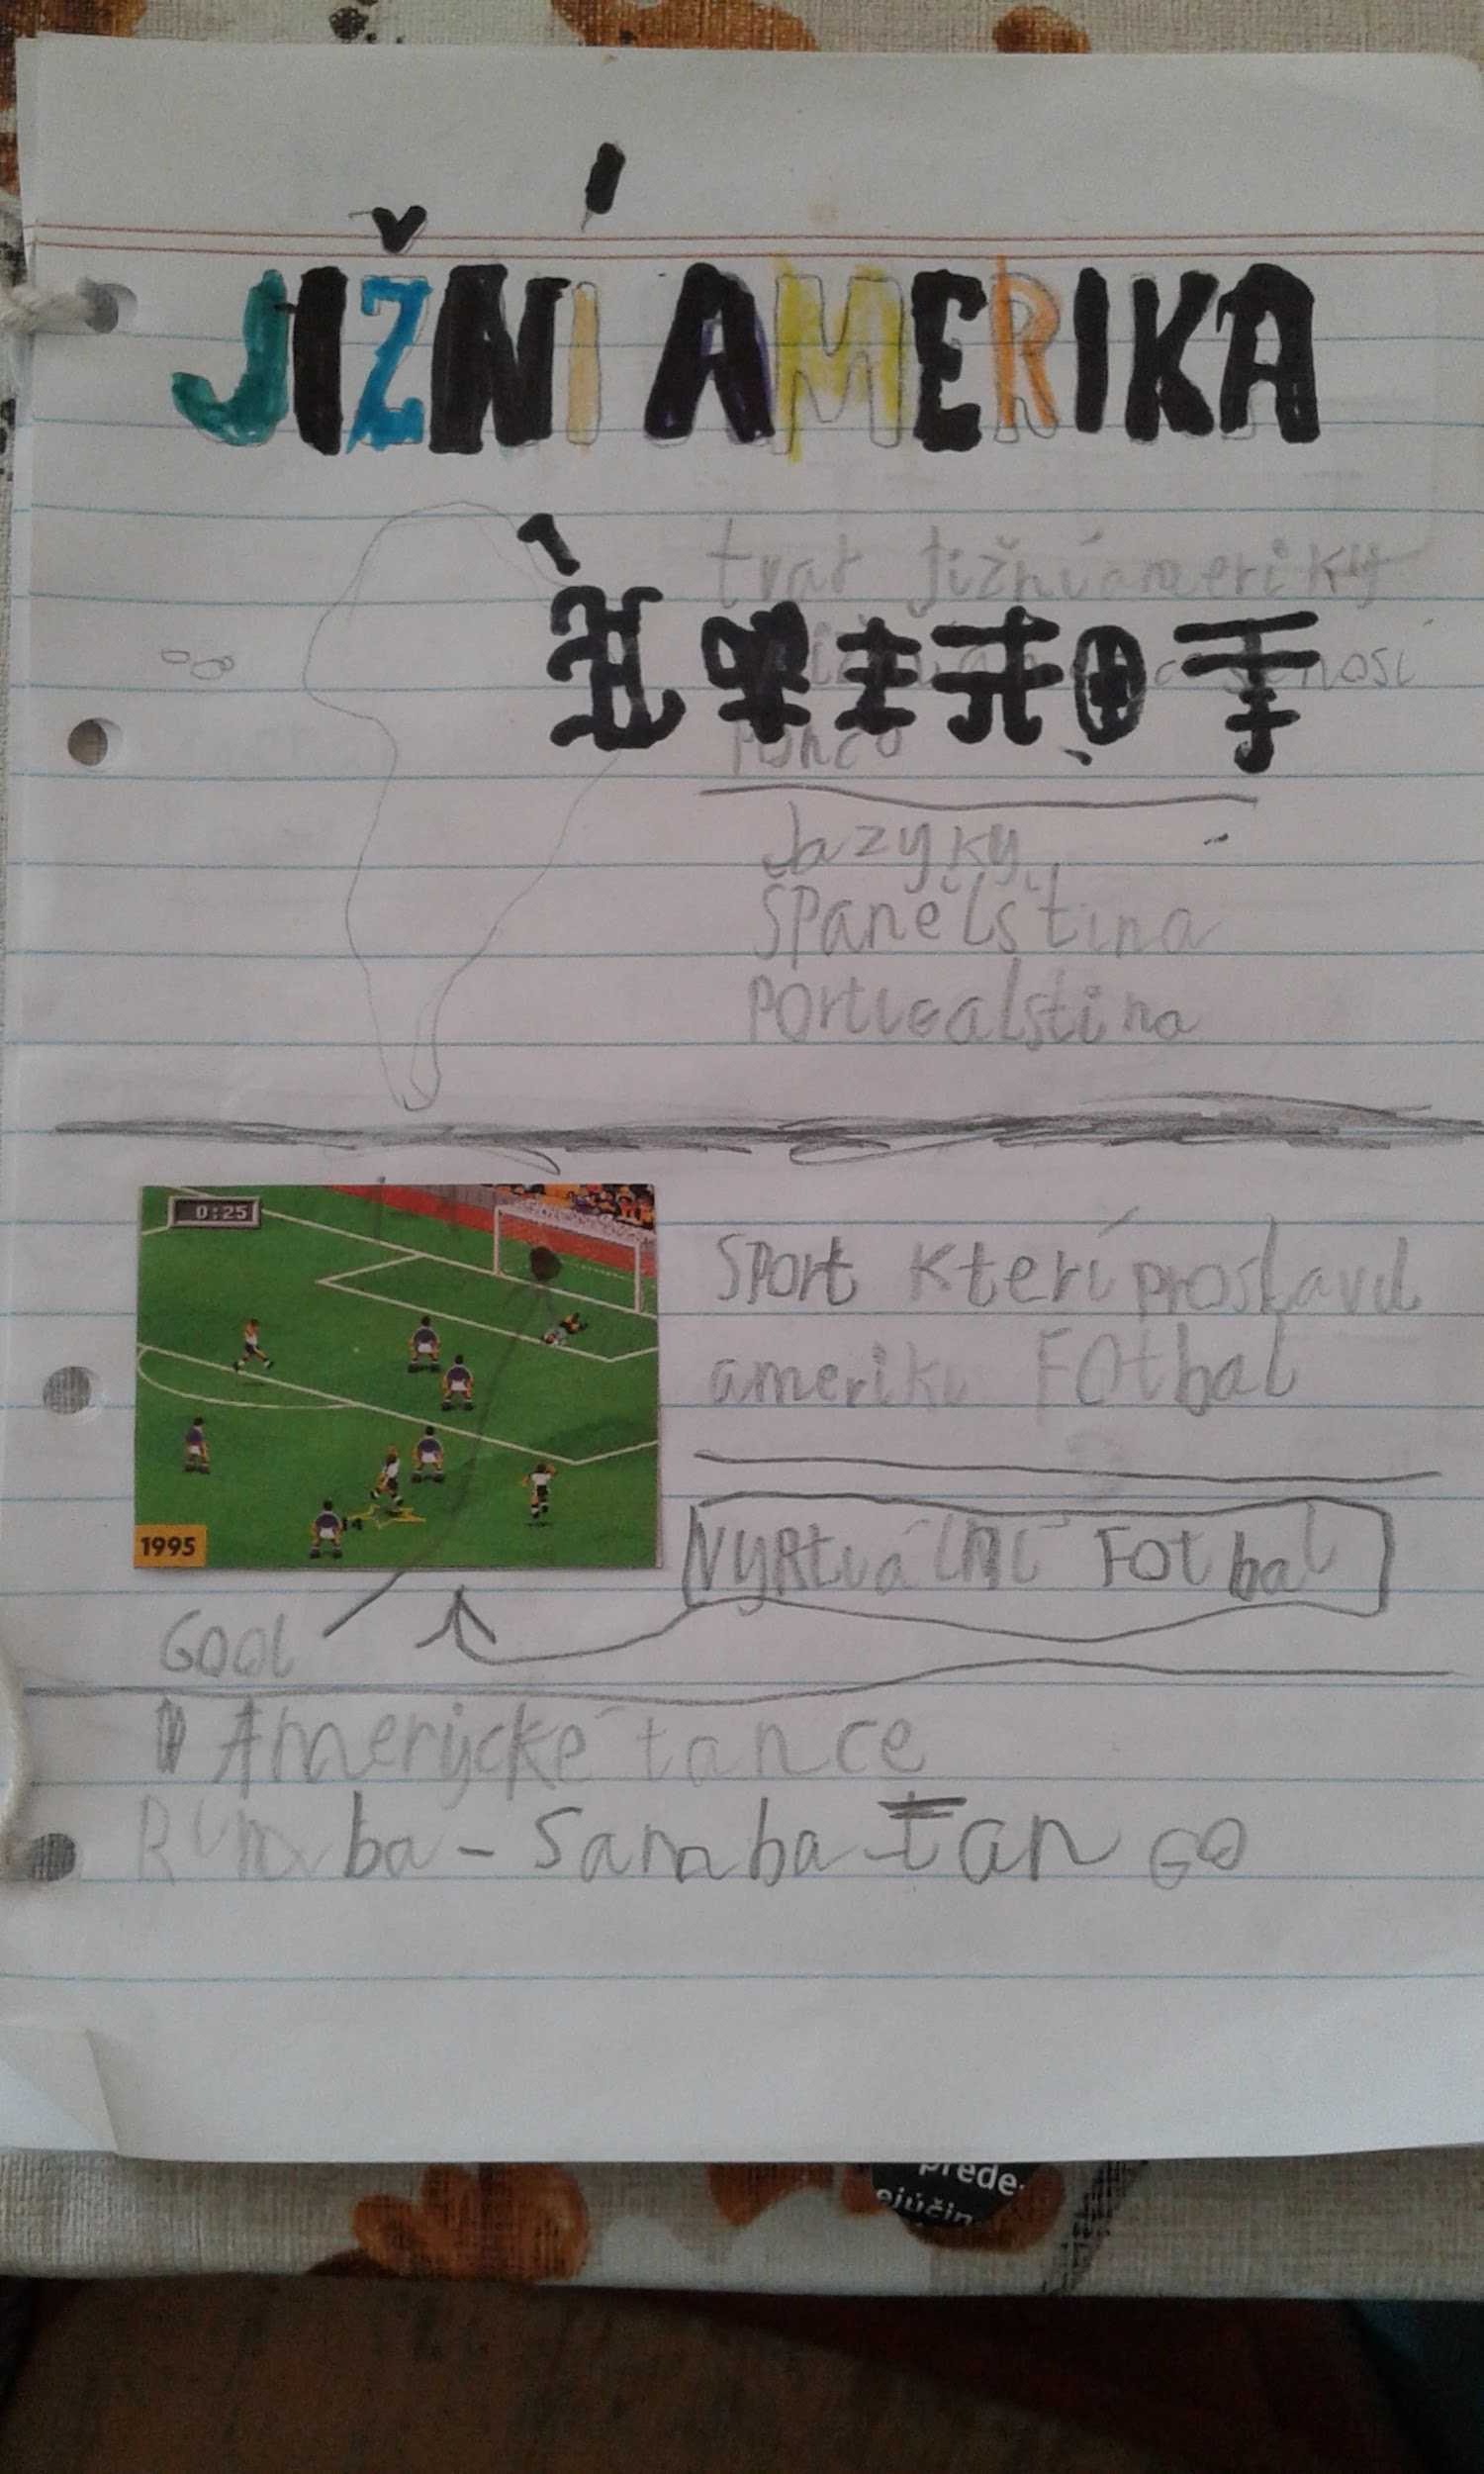 JIŽNÍ AMERIKA
tvar Jižní ameriky
nosí
Pončo
Jazyky
Španělština
Portugalština
0:25
Sport kterí proslavil
ameriku Fotbal
1995
Vyrtuální Fotbal
Gool
Amerycké tance
Rumba - Samba - Tango
přede-
ejúčin